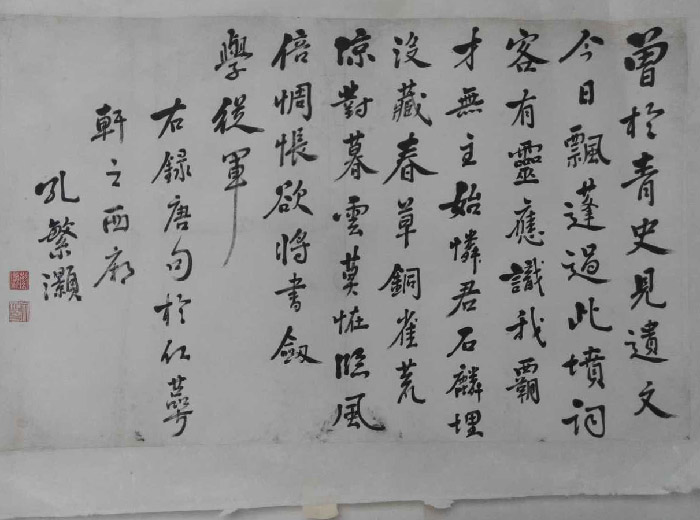 曾於青史見遺文
今日飄蓬過此墳詞
客有靈應識我霸
才無主始憐君石麟埋
沒藏春草銅雀荒
涼對暮雲莫怪臨風
倍惆悵欲將書劔
學從軍
右録唐句於仁萼
軒之西廊
孔繁灝